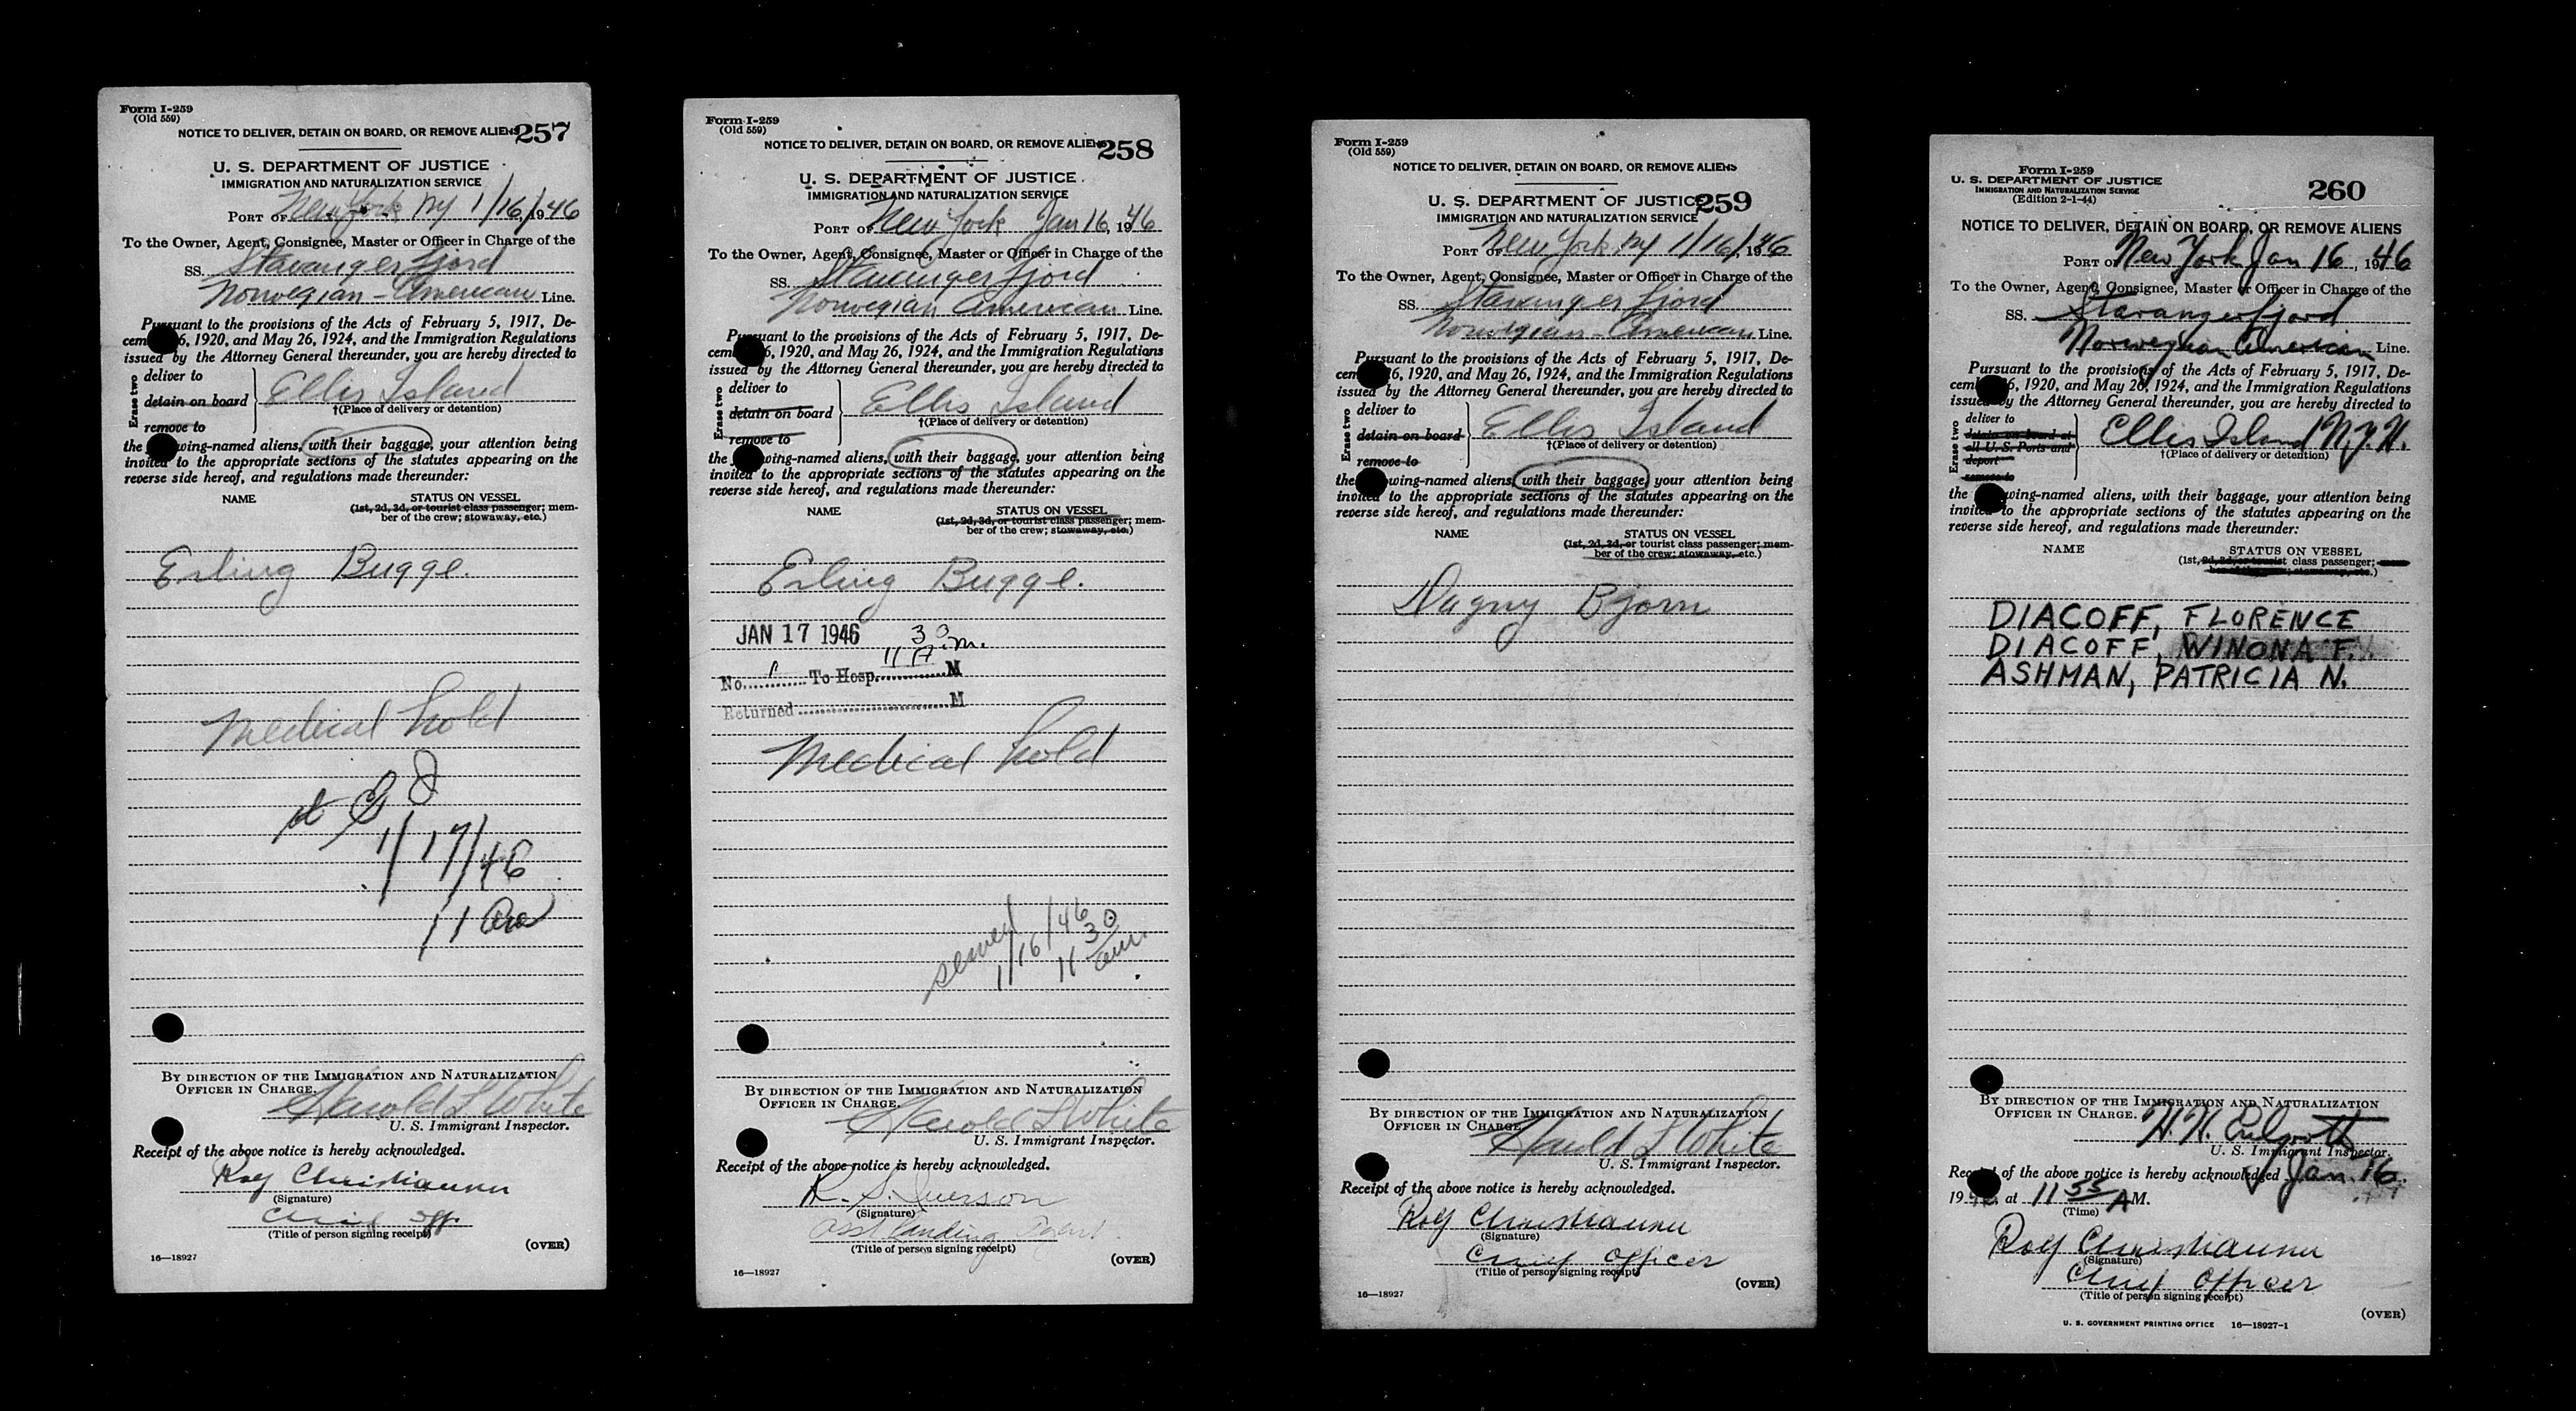 Form I-259
(Old 559)
NOTICE TO DELIVER, DETAIN ON BOARD, OR REMOVE ALIENS
257
U. S. DEPARTMENT OF JUSTICE
IMMIGRATION AND NATURALIZATION SERVICE
PORT OF New York NY 1/16/1946
To the Owner, Agent, Consignee, Master or Officer in Charge of the
SS. Stavangerfjord
Norwegian-American Line.
Pursuant to the provisions of the Acts of February 5, 1917, De-
cem 6, 1920, and May 26, 1924, and the Immigration Regulations
issued by the Attorney General thereunder, you are hereby directed to
Erase two
deliver to
detain on board
remove to
Ellis Island
†(Place of delivery or detention)
the wing-named aliens, with their baggage, your attention being
invited to the appropriate sections of the statutes appearing on the
reverse side hereof, and regulations made thereunder:
NAME STATUS ON VESSEL
(1st, 2d, 3d, or tourist class passenger; mem-
ber of the crew; stowaway, etc.)
Erling Bugge.
Medical hold
1/17/46
11
BY DIRECTION OF THE IMMIGRATION AND NATURALIZATION
OFFICER IN CHARGE.
Harold L White
U. S. Immigrant Inspector.
Receipt of the above notice is hereby acknowledged.
Rolf Christiansen
(Signature)
Chief Off.
(Title of person signing receipt)
16—18927 (OVER)
Form I-259
(Old 559)
NOTICE TO DELIVER, DETAIN ON BOARD, OR REMOVE ALIENS
258
U. S. DEPARTMENT OF JUSTICE
IMMIGRATION AND NATURALIZATION SERVICE
PORT OF New York Jan 16, 1946
To the Owner, Agent, Consignee, Master or Officer in Charge of the
SS. Stavangerfjord
Norwegian American Line.
Pursuant to the provisions of the Acts of February 5, 1917, De-
cem 6, 1920, and May 26, 1924, and the Immigration Regulations
issued by the Attorney General thereunder, you are hereby directed to
Erase two
deliver to
detain on board
remove to
Ellis Island
†(Place of delivery or detention)
the wing-named aliens, with their baggage, your attention being
invited to the appropriate sections of the statutes appearing on the
reverse side hereof, and regulations made thereunder:
NAME STATUS ON VESSEL
(1st, 2d, 3d, or tourist class passenger; mem-
ber of the crew; stowaway, etc.)
Erling Bugge.
JAN 17 1946
No. 1 To Hosp. 11 30 A.m. M
Returned M
Medical hold
served
1/16/46
11 30 am.
BY DIRECTION OF THE IMMIGRATION AND NATURALIZATION
OFFICER IN CHARGE.
Harold L White
U. S. Immigrant Inspector.
Receipt of the above notice is hereby acknowledged.
R. S. Iverson
(Signature)
Asst landing Agent
(Title of person signing receipt)
16—18927 (OVER)
Form I-259
(Old 559)
NOTICE TO DELIVER, DETAIN ON BOARD, OR REMOVE ALIENS
U. S. DEPARTMENT OF JUSTICE
259
IMMIGRATION AND NATURALIZATION SERVICE
PORT OF New York NY 1/16/1946
To the Owner, Agent, Consignee, Master or Officer in Charge of the
SS. Stavangerfjord
Norwegian-American Line.
Pursuant to the provisions of the Acts of February 5, 1917, De-
cem 6, 1920, and May 26, 1924, and the Immigration Regulations
issued by the Attorney General thereunder, you are hereby directed to
Erase two
deliver to
detain on board
remove to
Ellis Island
†(Place of delivery or detention)
the wing-named aliens, with their baggage, your attention being
invited to the appropriate sections of the statutes appearing on the
reverse side hereof, and regulations made thereunder:
NAME STATUS ON VESSEL
(1st, 2d, 3d, or tourist class passenger; mem-
ber of the crew; stowaway, etc.)
Dagny Bjorn
BY DIRECTION OF THE IMMIGRATION AND NATURALIZATION
OFFICER IN CHARGE.
Harold L White
U. S. Immigrant Inspector.
Receipt of the above notice is hereby acknowledged.
Rolf Christiansen
(Signature)
Chief Officer
(Title of person signing receipt)
16—18927 (OVER)
Form I-259
U. S. DEPARTMENT OF JUSTICE
IMMIGRATION AND NATURALIZATION SERVICE
(Edition 2-1-44)
260
NOTICE TO DELIVER, DETAIN ON BOARD, OR REMOVE ALIENS
PORT OF New York Jan 16, 1946
To the Owner, Agent, Consignee, Master or Officer in Charge of the
SS. Stavangerfjord
Norwegian American Line.
Pursuant to the provisions of the Acts of February 5, 1917, De-
cem 6, 1920, and May 26, 1924, and the Immigration Regulations
issued by the Attorney General thereunder, you are hereby directed to
Erase two
deliver to
detain on board at
all U. S. Ports and
deport
remove to
Ellis Island N.Y.H.
†(Place of delivery or detention)
the wing-named aliens, with their baggage, your attention being
invited to the appropriate sections of the statutes appearing on the
reverse side hereof, and regulations made thereunder:
NAME STATUS ON VESSEL
(1st, 2d, 3d, or tourist class passenger;
stowaway, etc.)
DIACOFF, FLORENCE
DIACOFF, WINONA F.
ASHMAN, PATRICIA N.
BY DIRECTION OF THE IMMIGRATION AND NATURALIZATION
OFFICER IN CHARGE.
U. S. Immigrant Inspector.
Receipt of the above notice is hereby acknowledged Jan. 16
1946 at 11 55 A M.
(Time)
Rolf Christiansen
(Signature)
Chief Officer
(Title of person signing receipt)
(OVER)
U. S. GOVERNMENT PRINTING OFFICE 16—18927-1